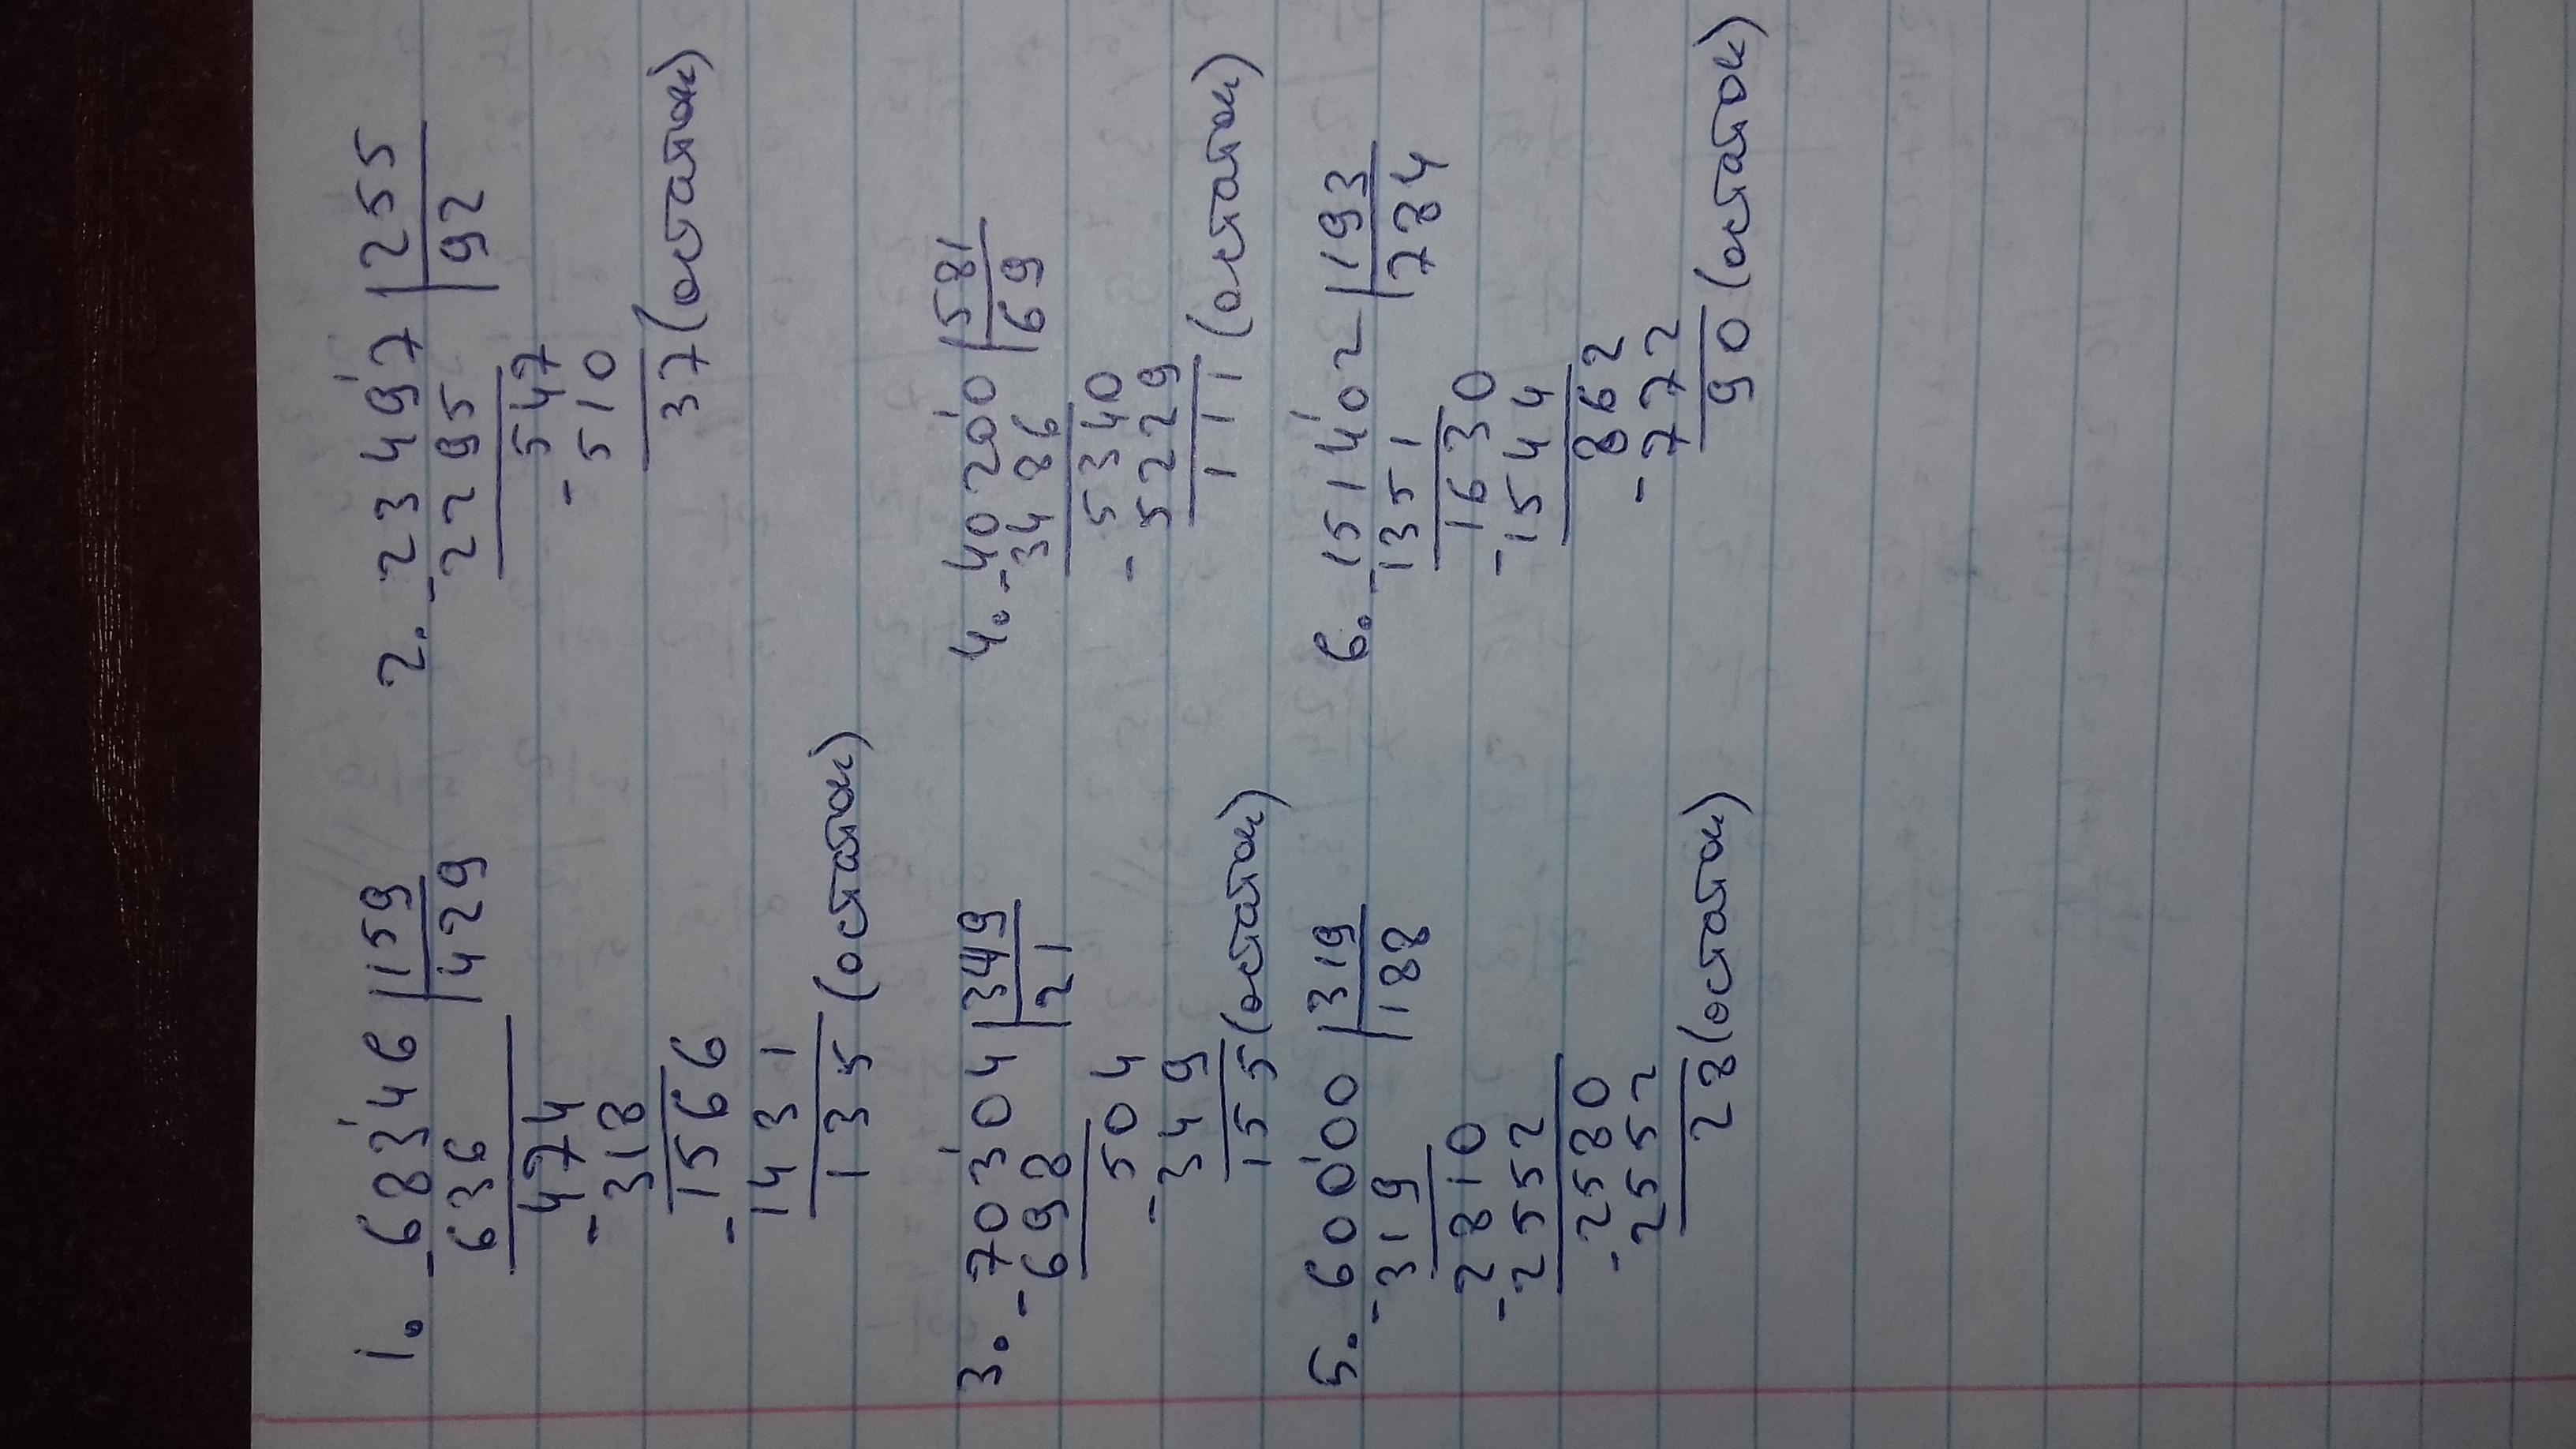 1. - 68346 | 159
636 | 429
474
- 318
1566
- 1431
135 (остаток)
2. - 23497 | 255
2295 | 92
547
- 510
37 (остаток)
3. - 70304 | 349
698 | 21
504
- 349
155 (остаток)
4. - 40200 | 581
3486 | 69
5340
- 5229
111 (остаток)
5. - 60000 | 319
319 | 188
2810
- 2552
2580
- 2552
28 (остаток)
6. - 151402 | 193
1351 | 784
1630
- 1544
862
- 772
90 (остаток)